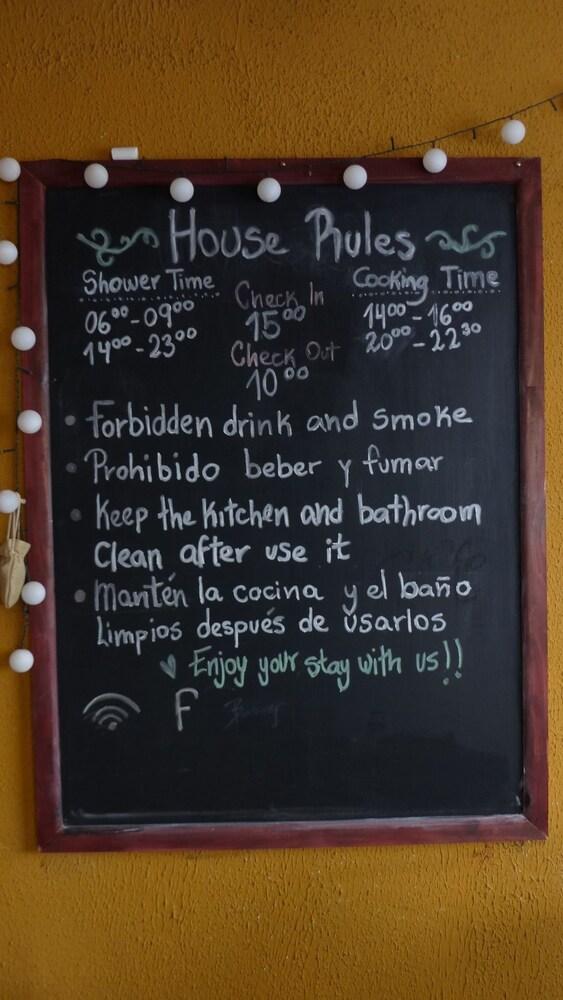 House Rules
Shower Time
06⁰⁰-09⁰⁰
14⁰⁰-23⁰⁰
Check In
15⁰⁰
Check Out
10⁰⁰
Cooking Time
14⁰⁰-16⁰⁰
20⁰⁰-22³⁰
• Forbidden drink and smoke
• Prohibido beber y fumar
• Keep the kitchen and bathroom
Clean after use it
• Mantén la cocina y el baño
Limpios después de usarlos
♥ Enjoy your stay with us!!
F